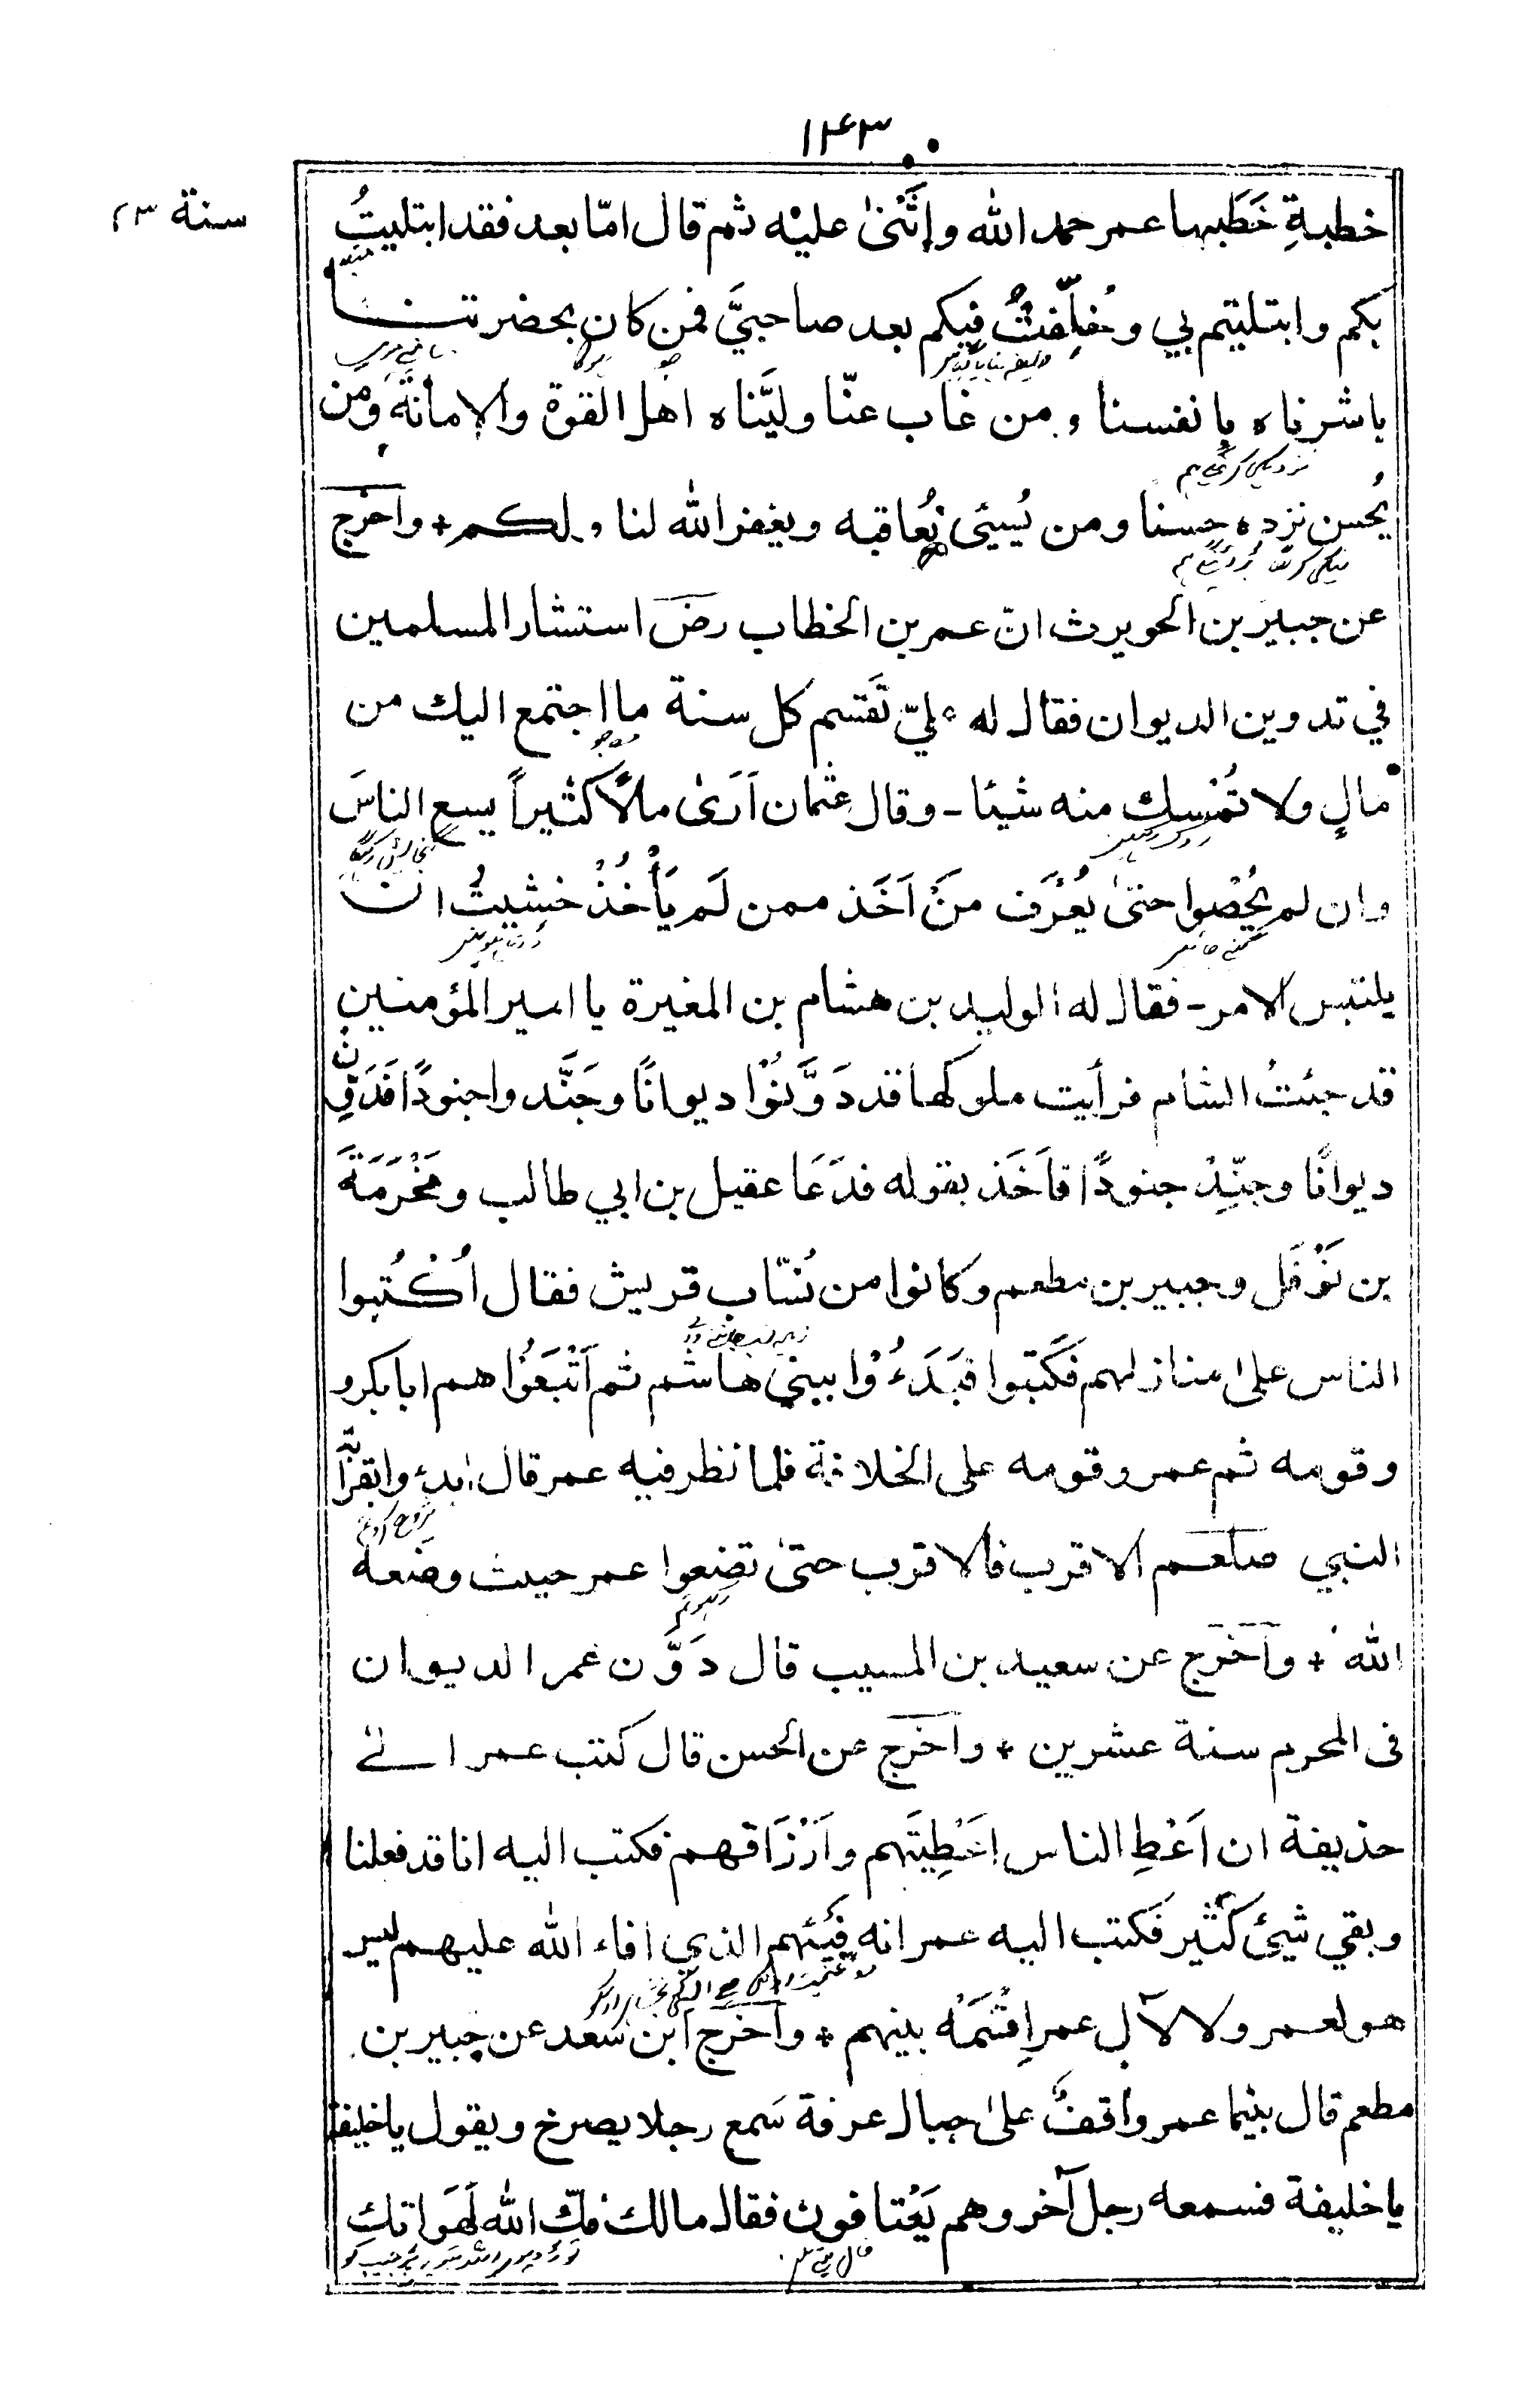 ١٤٣
سنة ٢٣
خطبةِ خَطَبها عمر حمد الله واثْنىٰ عليْه ثم قال امّا بعد فقد ابتليتُ
بكم وابتليتم بي وخُلِّفتُ فيكم بعد صاحبيَّ فمن كان بحضرتنا
باشرناه بانفسنا ومن غاب عنّا وليَّناه اهل القوة والامانة ومن
يُحسن نزده حسنا ومن يُسيئ نُعاقبه ويغفر الله لنا ولكم + واخرج
عن جبير بن الحويرث انّ عمر بن الخطاب رضـ استشار المسلمين
في تدوين الديوان فقال له عليّ تَقسم كل سنة ما اجتمع اليك من
مالٍ ولا تُمْسك منه شيئا - وقال عثمان اَرَىٰ مالًا كثيراً يسع الناسَ
وان لم يُحْصوا حتىٰ يُعْرَف مَنْ اَخَذ ممن لَم يَأْخُذْ خشيتُ ان
يلتبس الامر - فقال له الوليد بن هشام بن المغيرة يا امير المؤمنين
قد جئتُ الشام فرأيت ملوكها قد دَوَّنُوْا ديوانًا وجَنَّدوا جنودًا فَدَوِّن
ديوانًا وجنِّدْ جنودًا فاَخَذ بقوله فدَعَا عقيل بن ابي طالب ومَخْرَمَةَ
بن نَوْفَل وجبير بن مطعم وكانوا من نُسّاب قريش فقال اُكْتُبوا
الناس علىٰ منازلهم فَكَتبوا فبَدَءُوْا ببني هاشم ثم اَتْبَعُوْا هم ابا بكر و
وقومه ثم عمر وقومه على الخلافة فلما نظر فيه عمر قال ابدءوا بقرابة
النبي صلعم الاقرب فالاقرب حتىٰ تضعوا عمر حيث وضعه
الله + واَخْرَج عن سعيد بن المسيب قال دَوَّن عمر الديوان
فى المحرم سنة عشرين + واخرج عن الحسن قال كتب عمر الىٰ
حذيفة ان اَعْطِ الناس اعْطِيَتَهم واَرْزَاقهم فكتب اليه انا قد فعلنا
وبقي شيئ كثير فَكتب اليه عمر انه فَيْئهم الذي افاء الله عليهم ليس
هو لعمر ولا لآل عمر اِقْسَمْهُ بينهم + واخرج ابن سعد عن جبير بن
مطعم قال بينما عمر واقفٌ علىٰ جبال عرفة سَمع رجلا يصرخ ويقول يا خليفة
يا خليفة فسمعه رجل آخر وهم يَعْتافون فقال مالك فكّ الله لَهَوَاتك